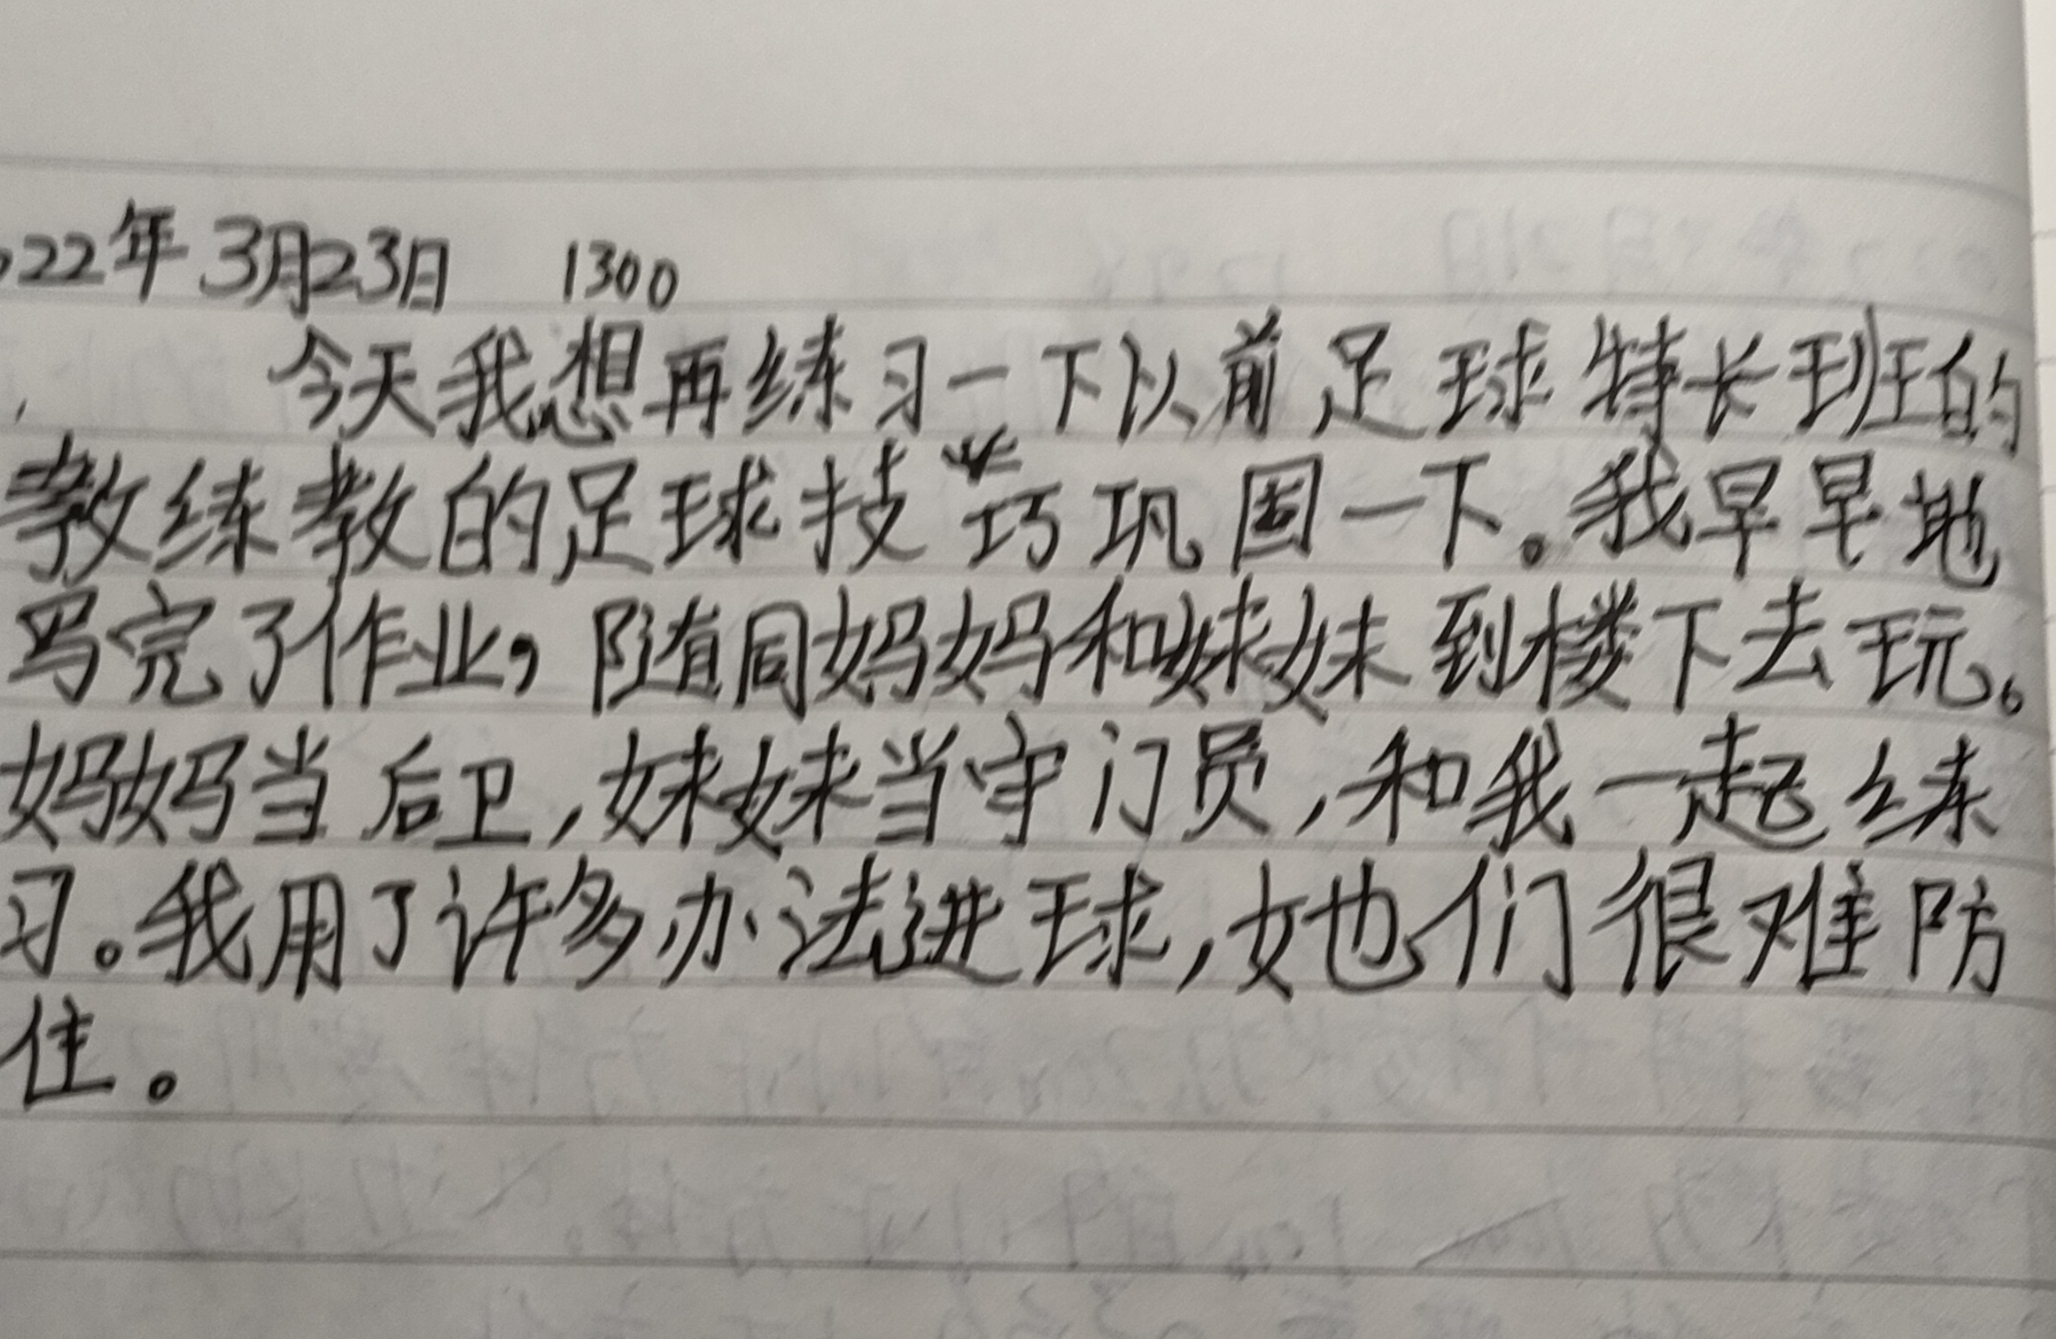 022年3月23日 1300
今天我想再练习一下以前足球特长班的
教练教的足球技巧巩固一下。我早早地
写完了作业，随同妈妈和妹妹到楼下去玩。
妈妈当后卫，妹妹当守门员，和我一起练
习。我用了许多办法进球，她们很难防
住。